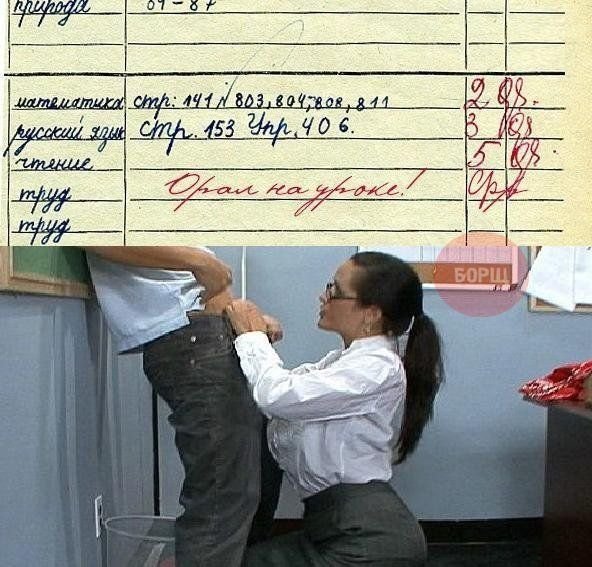 природа
математика стр: 141 № 803, 804, 808, 811 2
русский язык стр. 153 Упр. 406. 3
чтение 5
труд Орал на уроке!
труд
БОРЩ